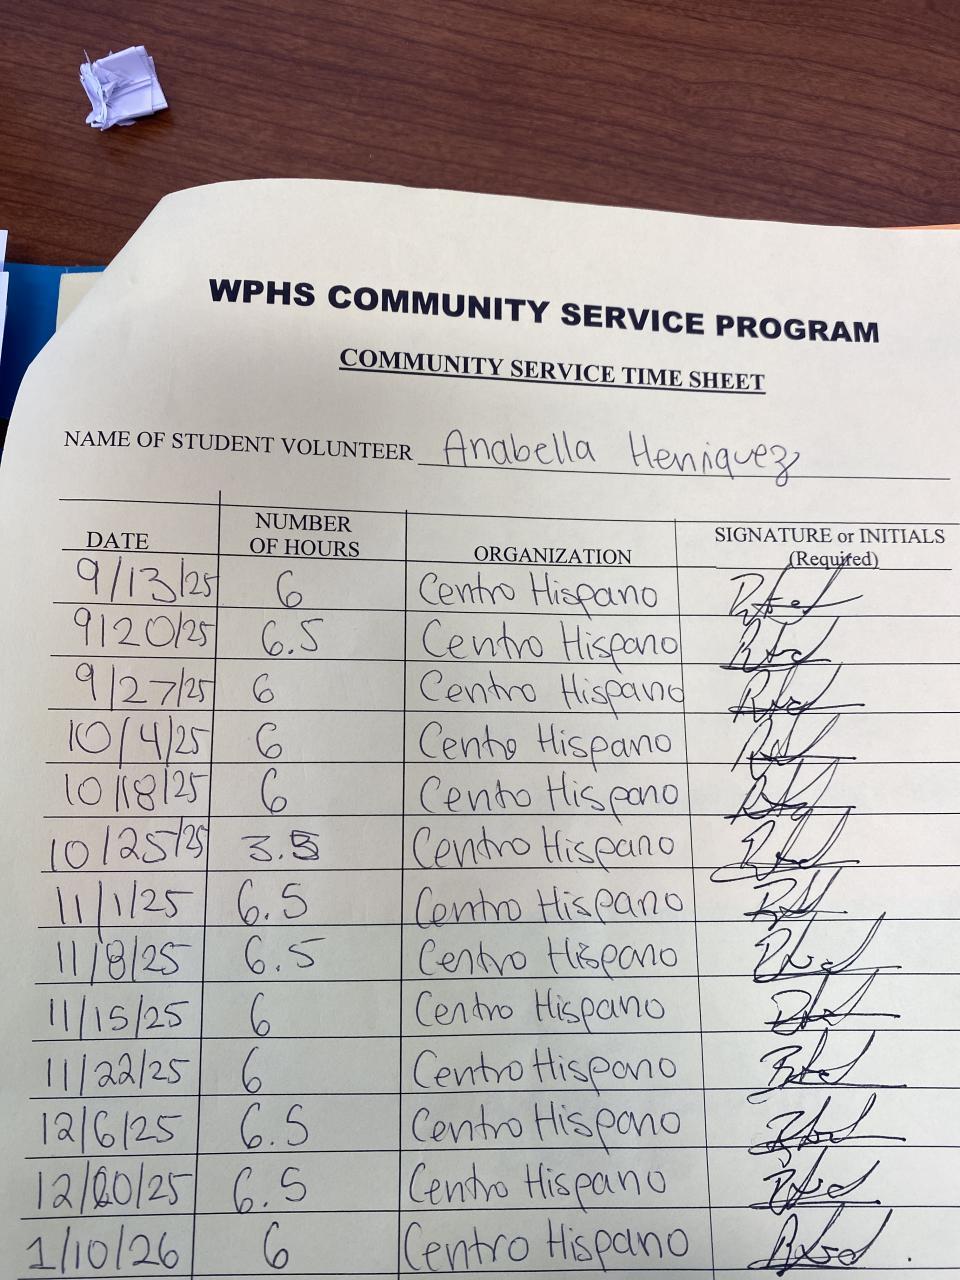 WPHS COMMUNITY SERVICE PROGRAM
COMMUNITY SERVICE TIME SHEET
NAME OF STUDENT VOLUNTEER Anabella Heniquez
DATE NUMBER OF HOURS ORGANIZATION SIGNATURE or INITIALS (Required)
9/13/25 6 Centro Hispano
9/20/25 6.5 Centro Hispano
9/27/25 6 Centro Hispano
10/4/25 6 Centro Hispano
10/18/25 6 Centro Hispano
10/25/25 3.5 Centro Hispano
11/1/25 6.5 Centro Hispano
11/8/25 6.5 Centro Hispano
11/15/25 6 Centro Hispano
11/22/25 6 Centro Hispano
12/6/25 6.5 Centro Hispano
12/20/25 6.5 Centro Hispano
1/10/26 6 Centro Hispano